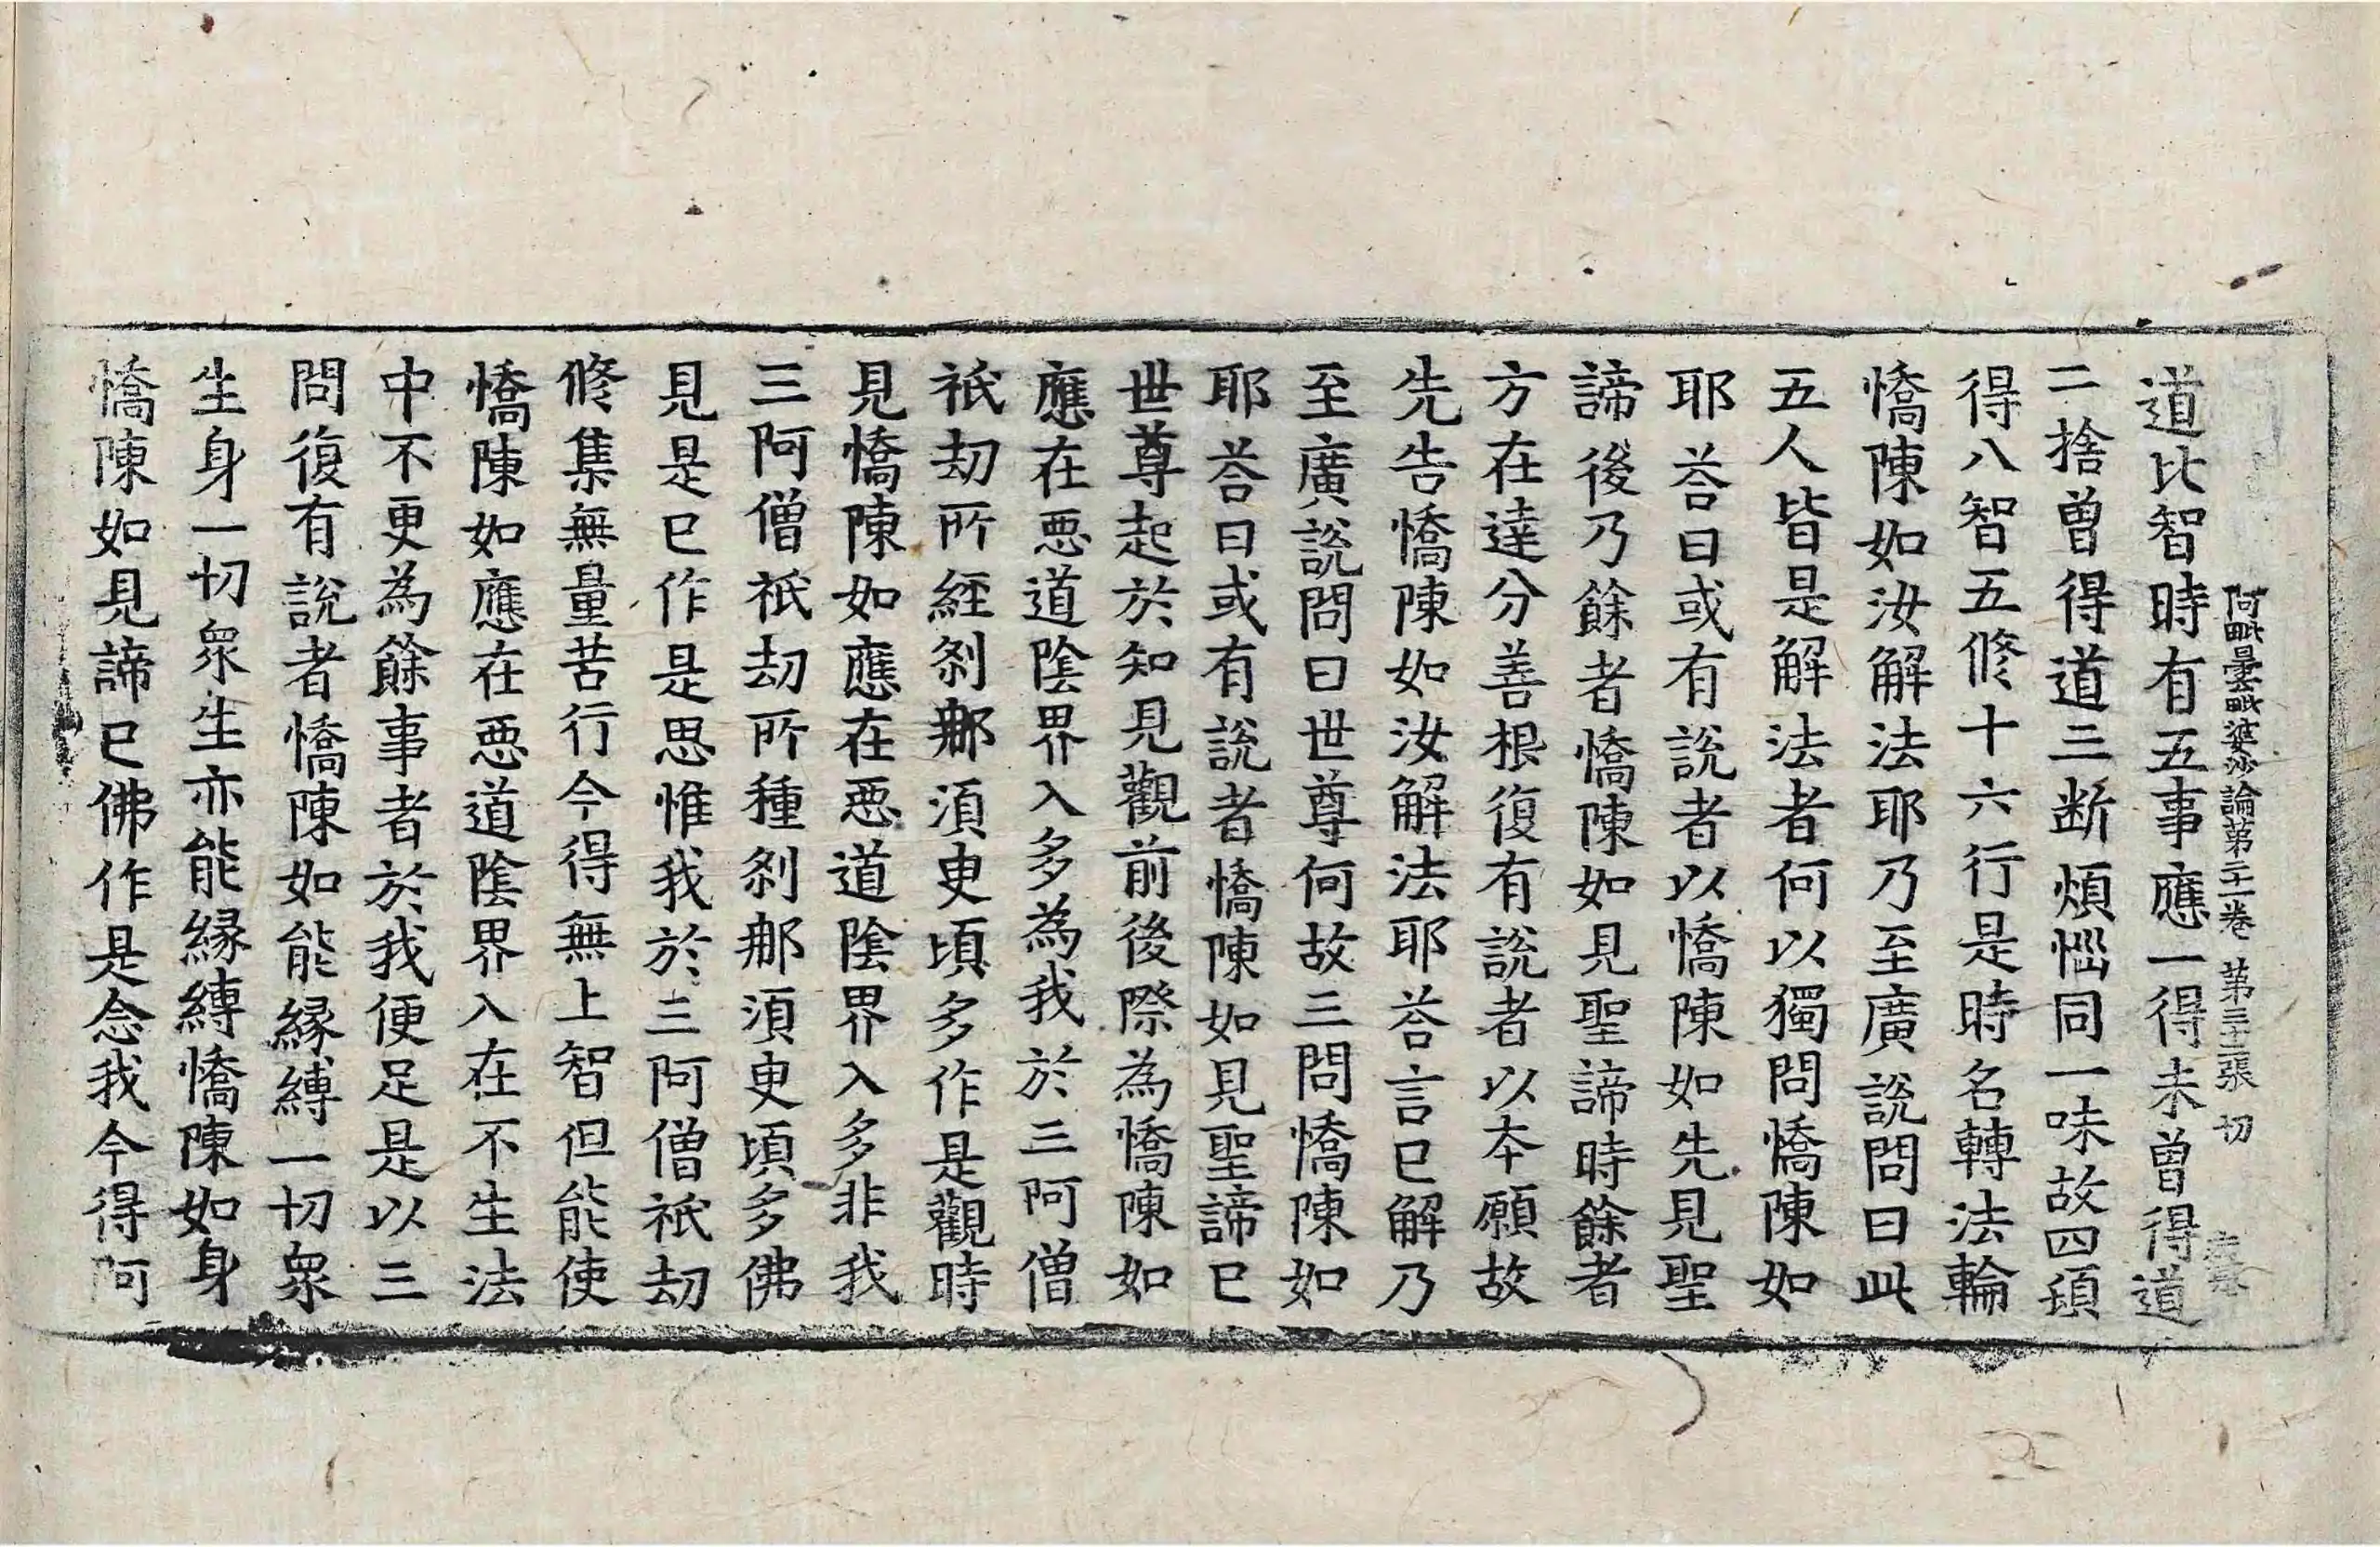 阿毗曇毗婆沙論第二十一卷 第三十二張 切
道比智時有五事應一得未曾得道
二捨曾得道三断煩惱同一味故四頓
得八智五修十六行是時名轉法輪
憍陳如汝解法耶乃至廣說問曰此
五人皆是解法者何以獨問憍陳如
耶荅曰或有說者以憍陳如先見聖
諦後乃餘者憍陳如見聖諦時餘者
方在達分善根復有說者以本願故
先告憍陳如汝解法耶荅言已解乃
至廣說問曰世尊何故三問憍陳如
耶荅曰或有說者憍陳如見聖諦已
世尊起於知見觀前後際為憍陳如
應在惡道陰界入多為我於三阿僧
祇劫所經剎那須臾頃多作是觀時
見憍陳如應在惡道陰界入多非我
三阿僧祇劫所種剎那須臾頃多佛
見是已作是思惟我於三阿僧祇劫
修集無量苦行今得無上智但能使
憍陳如應在惡道陰界入在不生法
中不更為餘事者於我便足是以三
問復有說者憍陳如能緣縛一切眾
生身一切眾生亦能緣縛憍陳如身
憍陳如見諦已佛作是念我今得阿